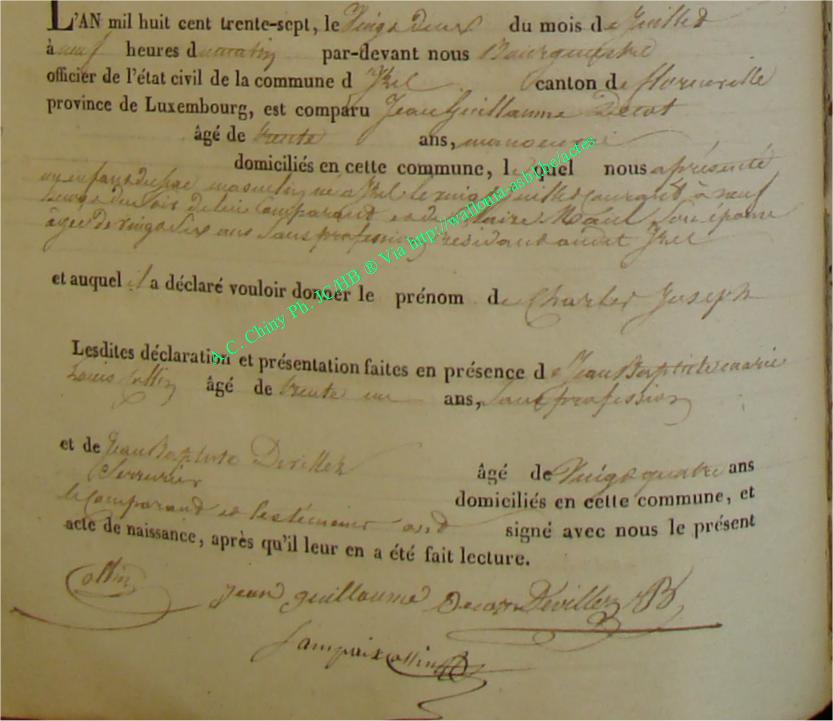 L'AN mil huit cent trente-sept, le Vingt deux du mois de Juillet
à neuf heures du matin par-devant nous Bourguemestre
officier de l'état civil de la commune d'Izel canton de florenville
province de Luxembourg, est comparu Jean Guillaume Decot
âgé de trente ans, manoeuvre
domiciliés en cette commune, lequel nous a présenté
un enfant du sexe masculin né a Izel le vingt Juillet courant, à neuf
heures du soir de lui comparant et de Marie Mául Son épouse
âgée de vingt Six ans Sans profession, résidant audit Izel
et auquel il a déclaré vouloir donner le prénom de Charles Joseph
Lesdites déclaration et présentation faites en présence de Jean Baptiste marie
Louis Collin âgé de trente un ans, Sans profession
et de Jean Baptiste Devillez âgé de Vingt quatre ans
Serrurier domiciliés en cette commune, et
le Comparant et les témoins ont signé avec nous le présent
acte de naissance, après qu'il leur en a été fait lecture.
Collin jean guillaume Decot Devillez JB
Lampaix Collin
A.C. Chiny Ph. JC/HB ® Via http://wallonia-asbl.be/actes